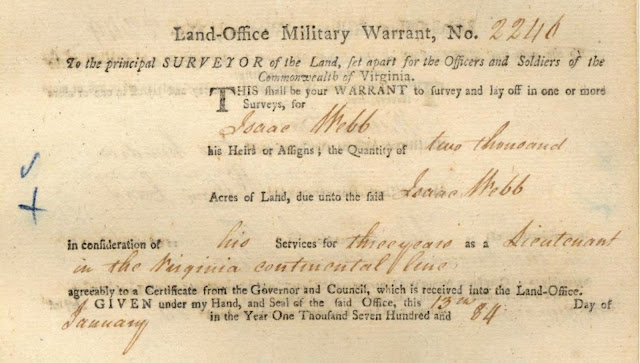 Land-Office Military Warrant, No.
To the principal SURVEYOR of the Land, set apart for the Officers and Soldiers of the
Commonwealth of Virginia.
THIS shall be your WARRANT to survey and lay off in one or more
Surveys, for
Isaac Webb
his Heirs or Assigns; the Quantity of two thousand
Acres of Land, due unto the said Isaac Webb
in consideration of his Services for three years as a Lieutenant
in the Virginia continental line
agreeably to a Certificate from the Governor and Council, which is received into the Land-Office.
GIVEN under my Hand, and Seal of the said Office, this 13th Day of
January in the Year One Thousand Seven Hundred and 84.